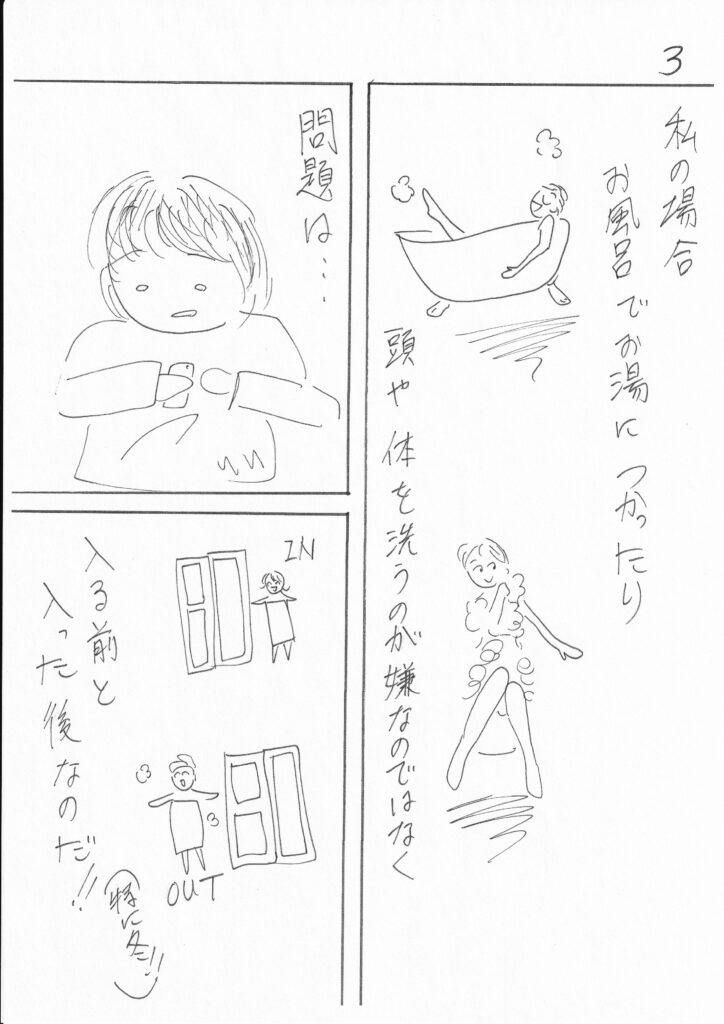 3
私の場合
お風呂でお湯につかったり
頭や体を洗うのが嫌なのではなく
問題は…
IN
OUT
入る前と
入った後なのだ!!
(特に冬!!)